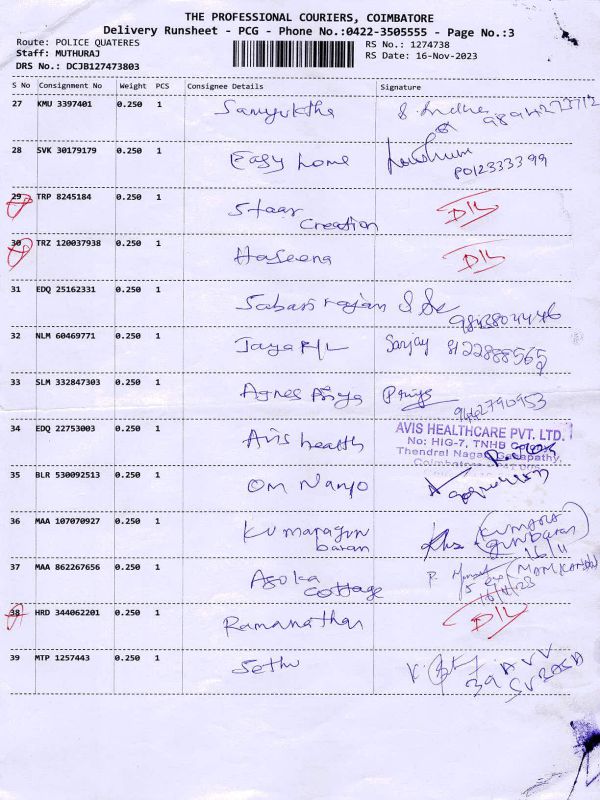 THE PROFESSIONAL COURIERS, COIMBATORE
Delivery Runsheet - PCG - Phone No.:0422-3505555 - Page No.:3
Route: POLICE QUATERES
RS No.: 1274738
Staff: MUTHURAJ
RS Date: 16-Nov-2023
DRS No.: DCJB127473803
S No Consignment No Weight PCS Consignee Details Signature
27 KMU 3397401 0.250 1 Samyuktha
28 SVK 30179179 0.250 1 Easy home
29 TRP 8245184 0.250 1 Staar D/L
Creation
30 TRZ 120037938 0.250 1 Haseena D/L
31 EDQ 25162331 0.250 1 Sabarirajan
32 NLM 60469771 0.250 1 Jaya Sanjay
33 SLM 332847303 0.250 1 Agnes Priya Priya
9442790953
34 EDQ 22753003 0.250 1 Avis health
AVIS HEALTHCARE PVT. LTD.
No: HIG-7, TNHB
Thendral Nagar
35 BLR 530092513 0.250 1 Om
36 MAA 107070927 0.250 1 Kumaragun
baran
16/11
37 MAA 862267656 0.250 1 Asoka
cottage
38 HRD 344062201 0.250 1 Ramanathan D/L
39 MTP 1257443 0.250 1 Sethu